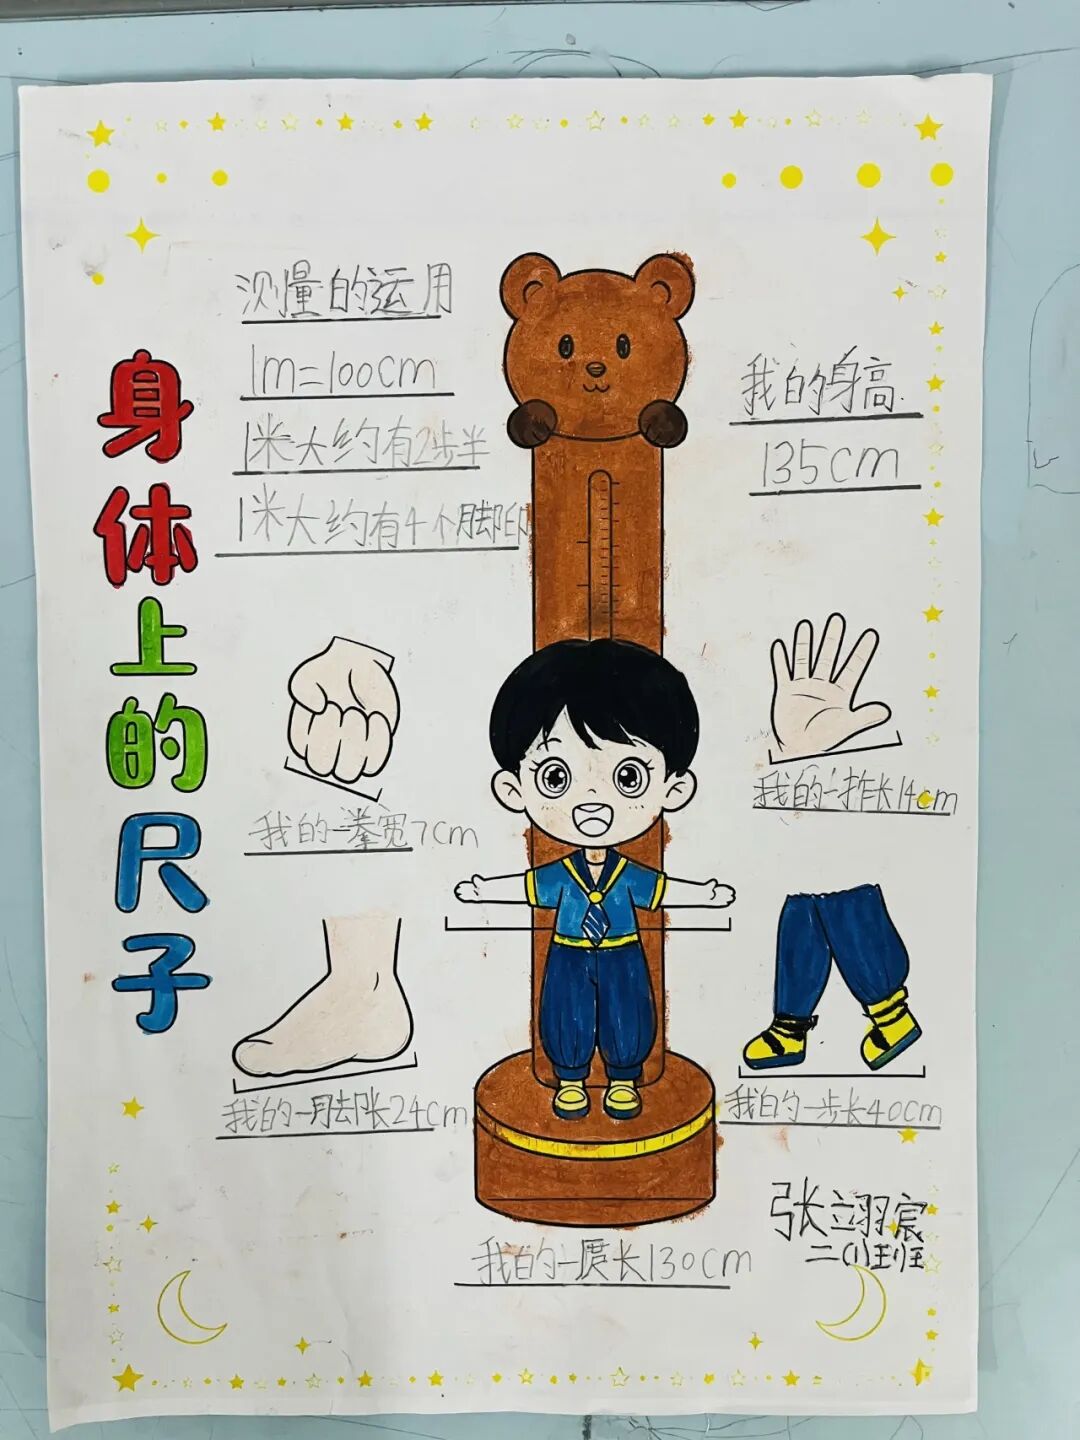 身体上的尺子
测量的运用
1m=100cm
1米大约有2步半
1米大约有4个脚印
我的身高
135cm
我的一拳宽7cm
我的一拃长14cm
我的一脚长24cm
我的一步长40cm
我的一庹长130cm
张翊宸
二(1)班